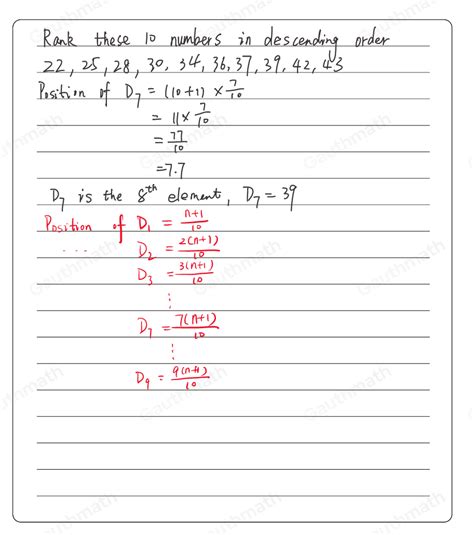 Rank these 10 numbers in descending order
22, 25, 28, 30, 34, 36, 37, 39, 42, 43
Position of D₇ = (10+1) × 7/10
= 11 × 7/10
= 77/10
= 7.7
D₇ is the 8th element, D₇ = 39
Position of D₁ = n+1/10
... D₂ = 2(n+1)/10
D₃ = 3(n+1)/10
⋮
D₇ = 7(n+1)/10
⋮
D₉ = 9(n+1)/10
Gauthmath